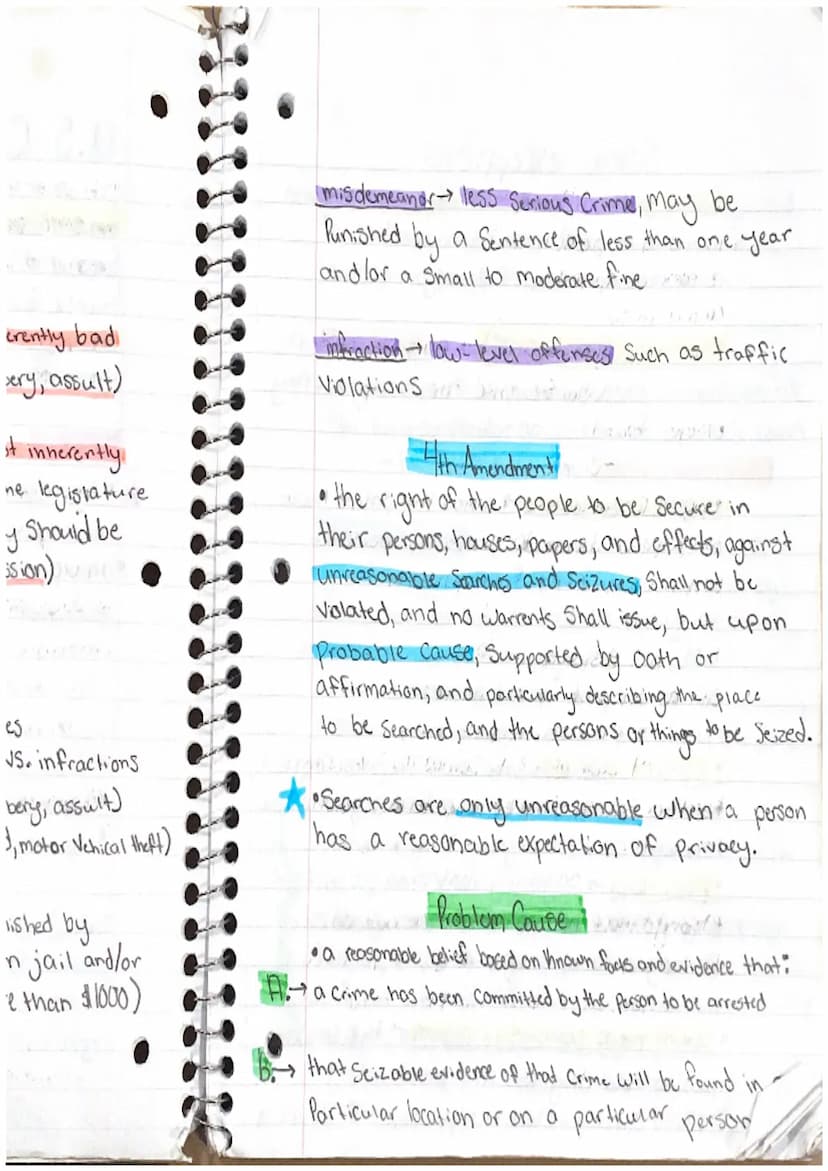 erently bad
ery, assult)
t inherently
ne legislature
y Should be
ssion)
es
vs. infractions
bery, assult)
d, motor Vehical theft)
ished by
n jail and/or
e than $1000)
misdemeanor → less Serious Crime, may be
Punished by a Sentence of less than one year
and/or a Small to Moderate fine
infraction → low-level offenses Such as traffic
violations
4th Amendment
• the right of the people to be Secure in
their persons, houses, papers, and effects, against
unreasonable Searchs and Seizures, Shall not be
violated, and no warrents Shall issue, but upon
probable cause, Supported by oath or
affirmation, and particularly describing the place
to be Searched, and the persons or things to be Seized.
★ • Searches are only unreasonable when a person
has a reasonable expectation of privacy.
Problem Cause
• a reasonable belief based on known facts and evidence that:
A. → a crime has been committed by the person to be arrested
B. → that Seizable evidence of that Crime will be found in
Particular location or on a particular person